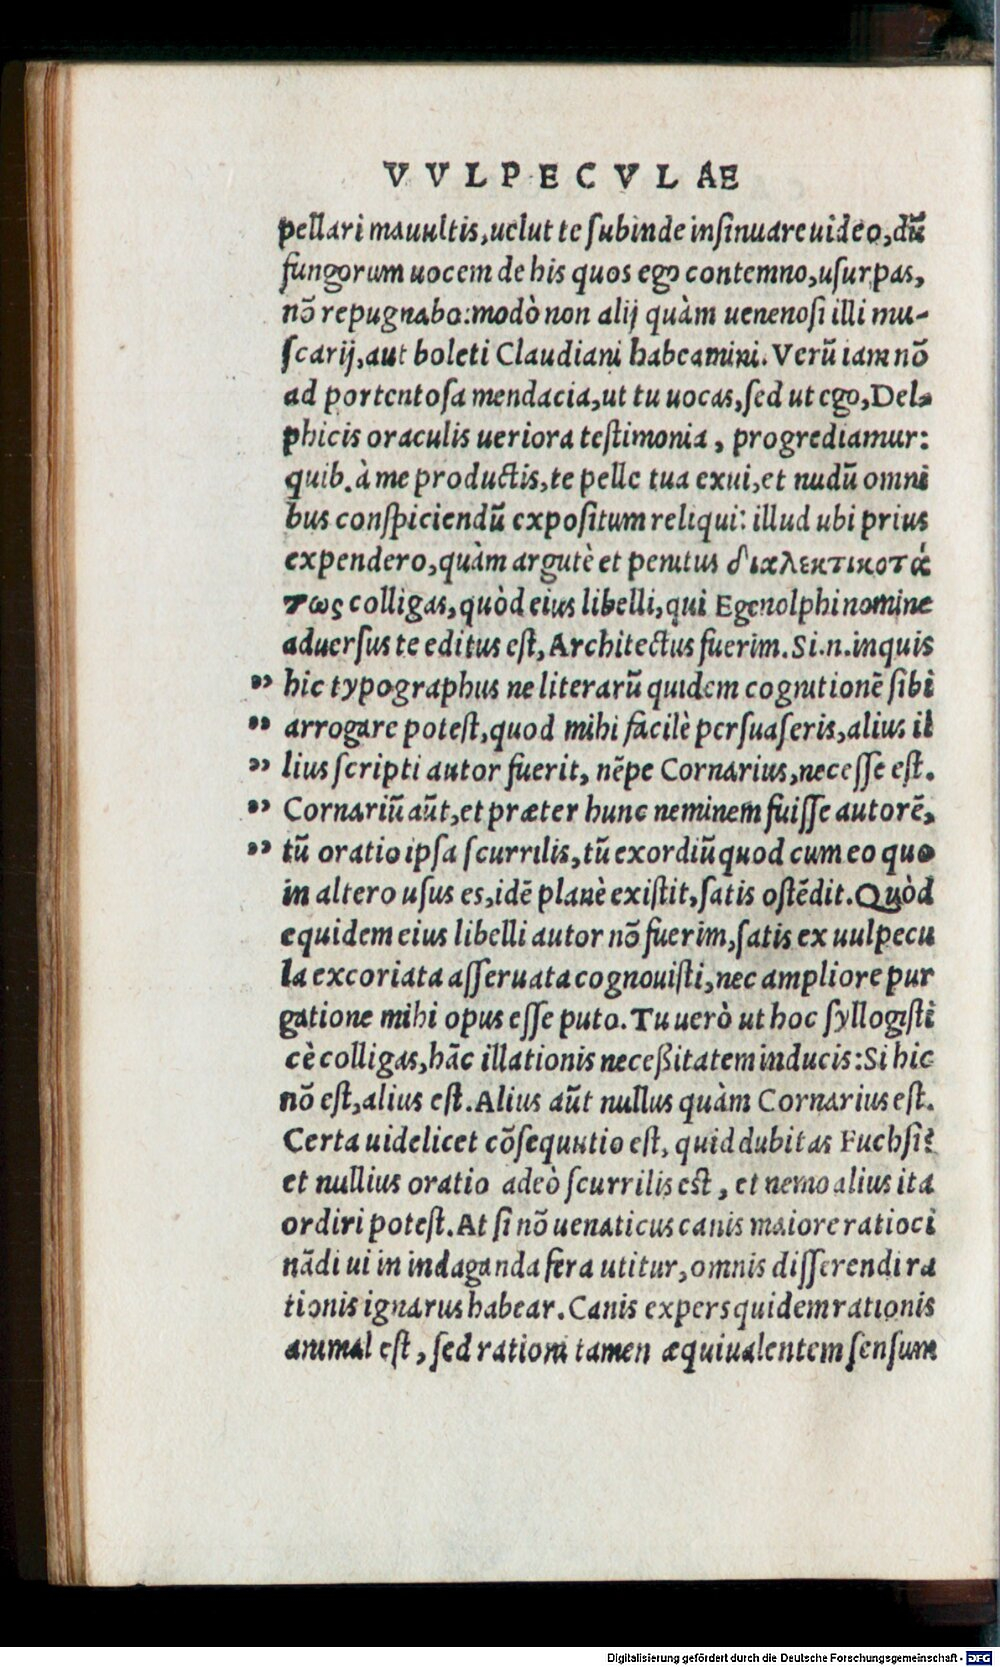 VVLPECVLAE
pellari mauultis, uelut te subinde insinuare uideo, dũ
fungorum uocem de his quos ego contemno, usurpas,
nõ repugnabo: modò non alij quàm uenenosi illi mu-
scarij, aut boleti Claudiani habeamini. Verũ iam nõ
ad portentosa mendacia, ut tu uocas, sed ut ego, Del-
phicis oraculis ueriora testimonia, progrediamur:
quib. à me productis, te pelle tua exui, et nudũ omni
bus conspiciendũ expositum reliqui: illud ubi prius
expendero, quàm argutè et penitus διαλεκτικοτά
τως colligas, quòd eius libelli, qui Egenolphi nomine
aduersus te editus est, Architectus fuerim. Si .n. inquis
„ hic typographus ne literarũ quidem cognitionẽ sibi
„ arrogare potest, quod mihi facilè persuaseris, alius il
„ lius scripti autor fuerit, nẽpe Cornarius, necesse est.
„ Cornariũ aũt, et præter hunc neminem fuisse autorẽ,
„ tũ oratio ipsa scurrilis, tũ exordiũ quod cum eo quo
in altero usus es, idẽ planè existit, satis ostẽdit. Quòd
equidem eius libelli autor nõ fuerim, satis ex uulpecu
la excoriata asseruata cognouisti, nec ampliore pur
gatione mihi opus esse puto. Tu uerò ut hoc syllogisti
cè colligas, hãc illationis neceßitatem inducis: Si hic
nõ est, alius est. Alius aũt nullus quàm Cornarius est.
Certa uidelicet cõsequutio est, quid dubitas Fuchsi?
et nullius oratio adeò scurrilis est, et nemo alius ita
ordiri potest. At si nõ uenaticus canis maiore ratioci
nãdi ui in indaganda fera utitur, omnis disserendi ra
tionis ignarus habear. Canis expers quidem rationis
animal est, sed rationi tamen æquiualentem sensum
Digitalisierung gefördert durch die Deutsche Forschungsgemeinschaft - DFG